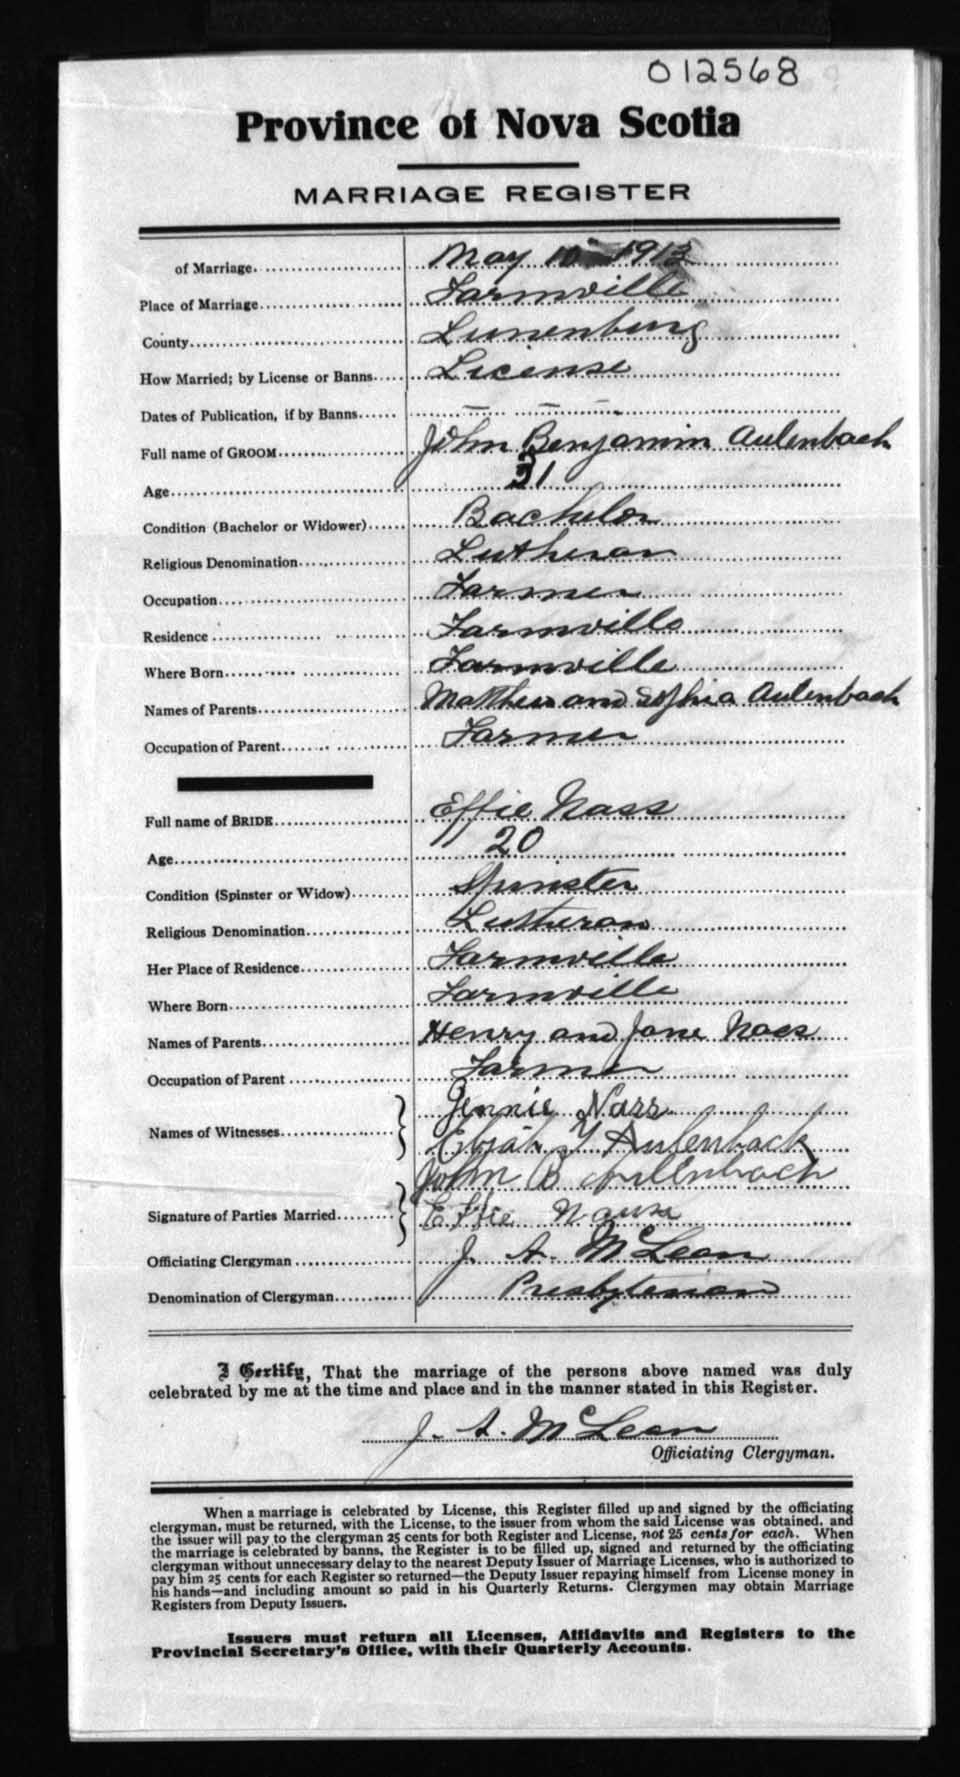 012568
Province of Nova Scotia
MARRIAGE REGISTER
of Marriage May 10 1913
Place of Marriage Farmville
County Lunenburg
How Married; by License or Banns License
Dates of Publication, if by Banns
Full name of GROOM John Benjamin Aulenbach
Age 31
Condition (Bachelor or Widower) Bachelor
Religious Denomination Lutheran
Occupation Farmer
Residence Farmville
Where Born Farmville
Names of Parents Matthew and Sophia Aulenbach
Occupation of Parent Farmer
Full name of BRIDE Effie Nass
Age 20
Condition (Spinster or Widow) Spinster
Religious Denomination Lutheran
Her Place of Residence Farmville
Where Born Farmville
Names of Parents Henry and Jane Nass
Occupation of Parent Farmer
Jennie Nass
Names of Witnesses
Elijah Y Aulenback
John B Aullenbach
Signature of Parties Married Effie Nauss
Officiating Clergyman J. A. McLean
Denomination of Clergyman Presbyterian
I Certify, That the marriage of the persons above named was duly
celebrated by me at the time and place and in the manner stated in this Register.
J. A. McLean
Officiating Clergyman.
When a marriage is celebrated by License, this Register filled up and signed by the officiating
clergyman, must be returned, with the License, to the issuer from whom the said License was obtained, and
the issuer will pay to the clergyman 25 cents for both Register and License, not 25 cents for each. When
the marriage is celebrated by banns, the Register is to be filled up, signed and returned by the officiating
clergyman without unnecessary delay to the nearest Deputy Issuer of Marriage Licenses, who is authorized to
pay him 25 cents for each Register so returned—the Deputy Issuer repaying himself from License money in
his hands—and including amount so paid in his Quarterly Returns. Clergymen may obtain Marriage
Registers from Deputy Issuers.
Issuers must return all Licenses, Affidavits and Registers to the
Provincial Secretary's Office, with their Quarterly Accounts.